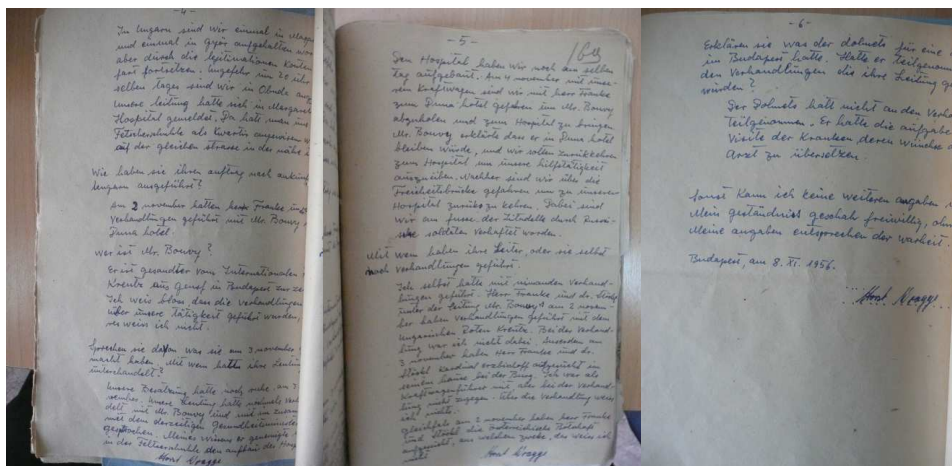 -4-
In Ungarn sind wir einmal in Magya
und einmal in Györ aufgehalten wor
aber durch die legitimationen konten
fart fortsetzen. ungefehr um 20 uhr
selben tages sind wir in Obuda an
unsere leitung hatte sich in Margare
Hospital gemeldet. Da hatt man uns
Feltserschuhle als kwartir angewisen
auf der gleichen strasse in der nähe
Wie haben sie ihren auftrag nach ankun
Ungarn ausgeführt?
Am 2 november hatten herr Franke, u
Verhandlungen geführt mit Mr. Bouvy
Duna hotel.
wer ist Mr. Bouvy?
Er ist gesandter vom Internationalen
Kreutz aus genf in Budapest zur ze
Ich weis bloss, dass die Verhandlungen
über unsere tätigkeit geführt wurden,
res weis ich nicht.
Sprechen sie davon was sie am 3 november
macht haben. Mit wem hatte ihre Leitun
unterhandelt?
Unsere Besatzung hatte noch ruhe, am 3
vember. Unsere Leitung hatte nochmals verh
delt mit Mr. Bouvy und mit
mit dem derzeitigen Gesundheitsminis
gesprochen. Meines wissens er genemigte
in der Feltserschuhle den aufbau des Hosp
Horst Kragge
-5-
Den Hospital haben wir noch am selben
tag aufgebaut. Am 4 november mit unse-
ren Kraftwagen sind wir mit herr Franke
zum Duna hotel gefaren um Mr. Bouvy
abzuholen und zum Hospital zu bringen
Mr. Bouvy erklärte dass er in Duna hotel
bleiben würde, und wir solten zurückkehren
zum Hospital um unsere hilfstätigkeit
auszuüben. Nachher sind wir über die
Freiheitsbrücke gefahren um zu unseren
Hospital zurück zu kehren. Dabei sind
wir am fusse der Zitadelle durch Russi-
sche soldaten verhaftet worden.
Mit wem haben ihre Leiter, oder sie selbst
noch verhandlungen geführt.
Ich selbst hatte mit niemanden Verhand-
lungen geführt. Herr Franke und dr. Stöckl
unter der Leitung Mr. Bouvy's am 2 novem-
ber haben Verhandlungen geführt mit dem
Ungarischen Roten Kreutz. Bei der Verhand-
lung war ich nicht dabei. Auserdem am
3 november haben Herr Franke und dr.
Stöckl Kardinal erzbischoff aufgesucht in
seinem hause bei der Burg. Ich war als
Kraftwagenführer mit aber bei der Verhand-
lung nicht zugegen. Über die Verhandlung weis
ich nichts.
Gleichfals am 2 november haben herr Franke
und Stöckl die österreichische Botschaft
aufgesucht, aus welchem zwecke, das weis ich
nicht.
Horst Kragge
-6-
Erklären sie was der dolmets für eine
in Budapest hatte. Hatte er teilgenom
den Verhandlungen die ihre Leitung ge
würden?
Der Dolmets hatt nicht an den Verha
Teilgenommen. Er hatte die aufgabe
Visite der Kranken deren Wünsche
Arzt zu übersetzen.
Sonst kann ich keine weiteren angaben
Mein geständniss geschah freiwillig, ohn
Meine angaben entsprechen der warheit
Budapest, am 8. XI. 1956.
Horst Kragge